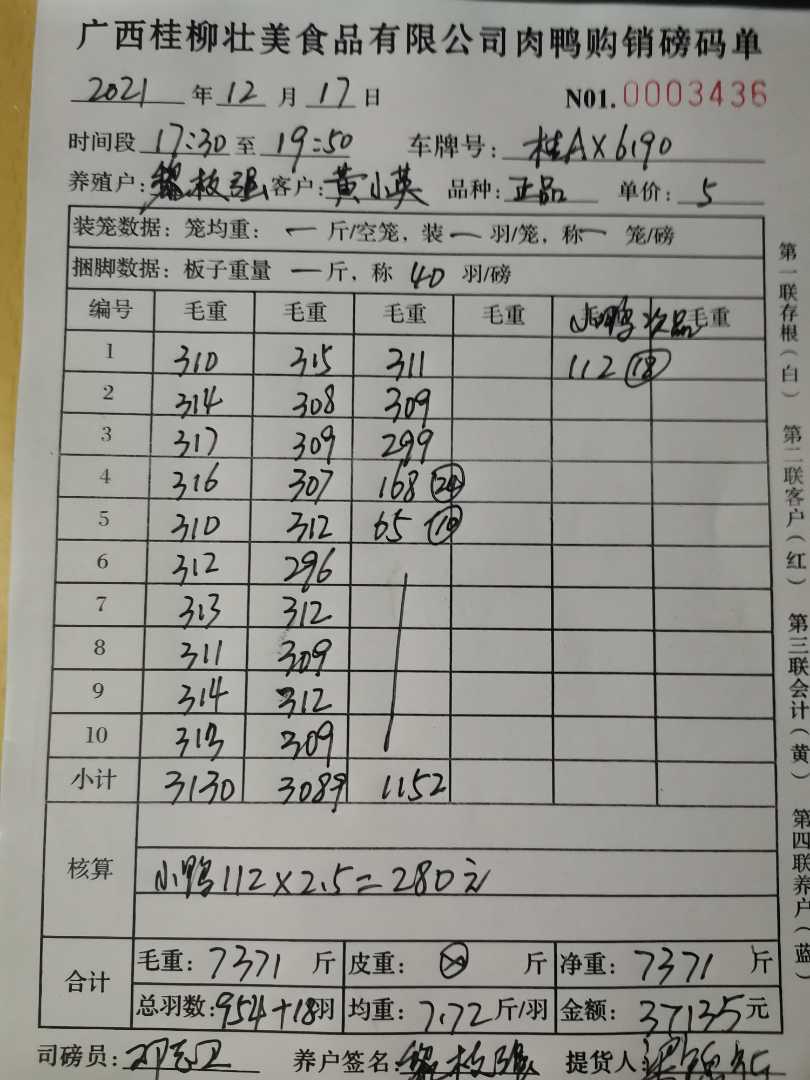 广西桂柳壮美食品有限公司肉鸭购销磅码单
2021 年 12 月 17 日 N01. 0003436
时间段 17:30 至 19:50 车牌号: 桂AX6190
养殖户: 黎枝强 客户: 黄小英 品种: 正品 单价: 5
装笼数据: 笼均重: 一 斤/空笼, 装 一 羽/笼, 称 一 笼/磅
捆脚数据: 板子重量 一 斤, 称 40 羽/磅
编号 毛重 毛重 毛重 毛重 小鸭次品 毛重
1 310 315 311 112 (18)
2 314 308 309
3 317 309 299
4 316 307 168 (24)
5 310 312 65 (10)
6 312 296
7 313 312
8 311 309
9 314 312
10 313 309
小计 3130 3089 1152
核算 小鸭112×2.5=280元
合计 毛重: 7371 斤 皮重: 斤 净重: 7371 斤
总羽数: 954+18羽 均重: 7.72 斤/羽 金额: 37135 元
司磅员: 养户签名: 黎枝强 提货人:
第一联存根(白) 第二联客户(红) 第三联会计(黄) 第四联养户(蓝)